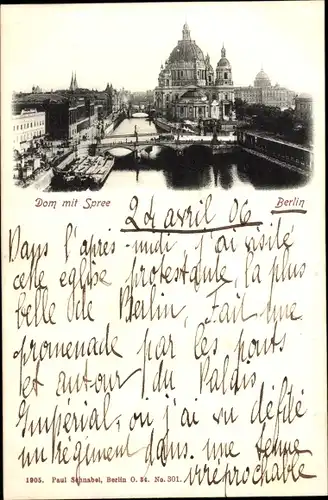 Dom mit Spree
Berlin
24 avril 06
Dans l'après-midi j'ai visité
cette eglise protestante, la plus
belle de Berlin, Fait une
promenade par les ponts
et autour du Palais
Impérial, où j'ai vu défilé
un Régiment dans une tenue
irréprochable
1905. Paul Schnabel, Berlin O. 34. No. 301.